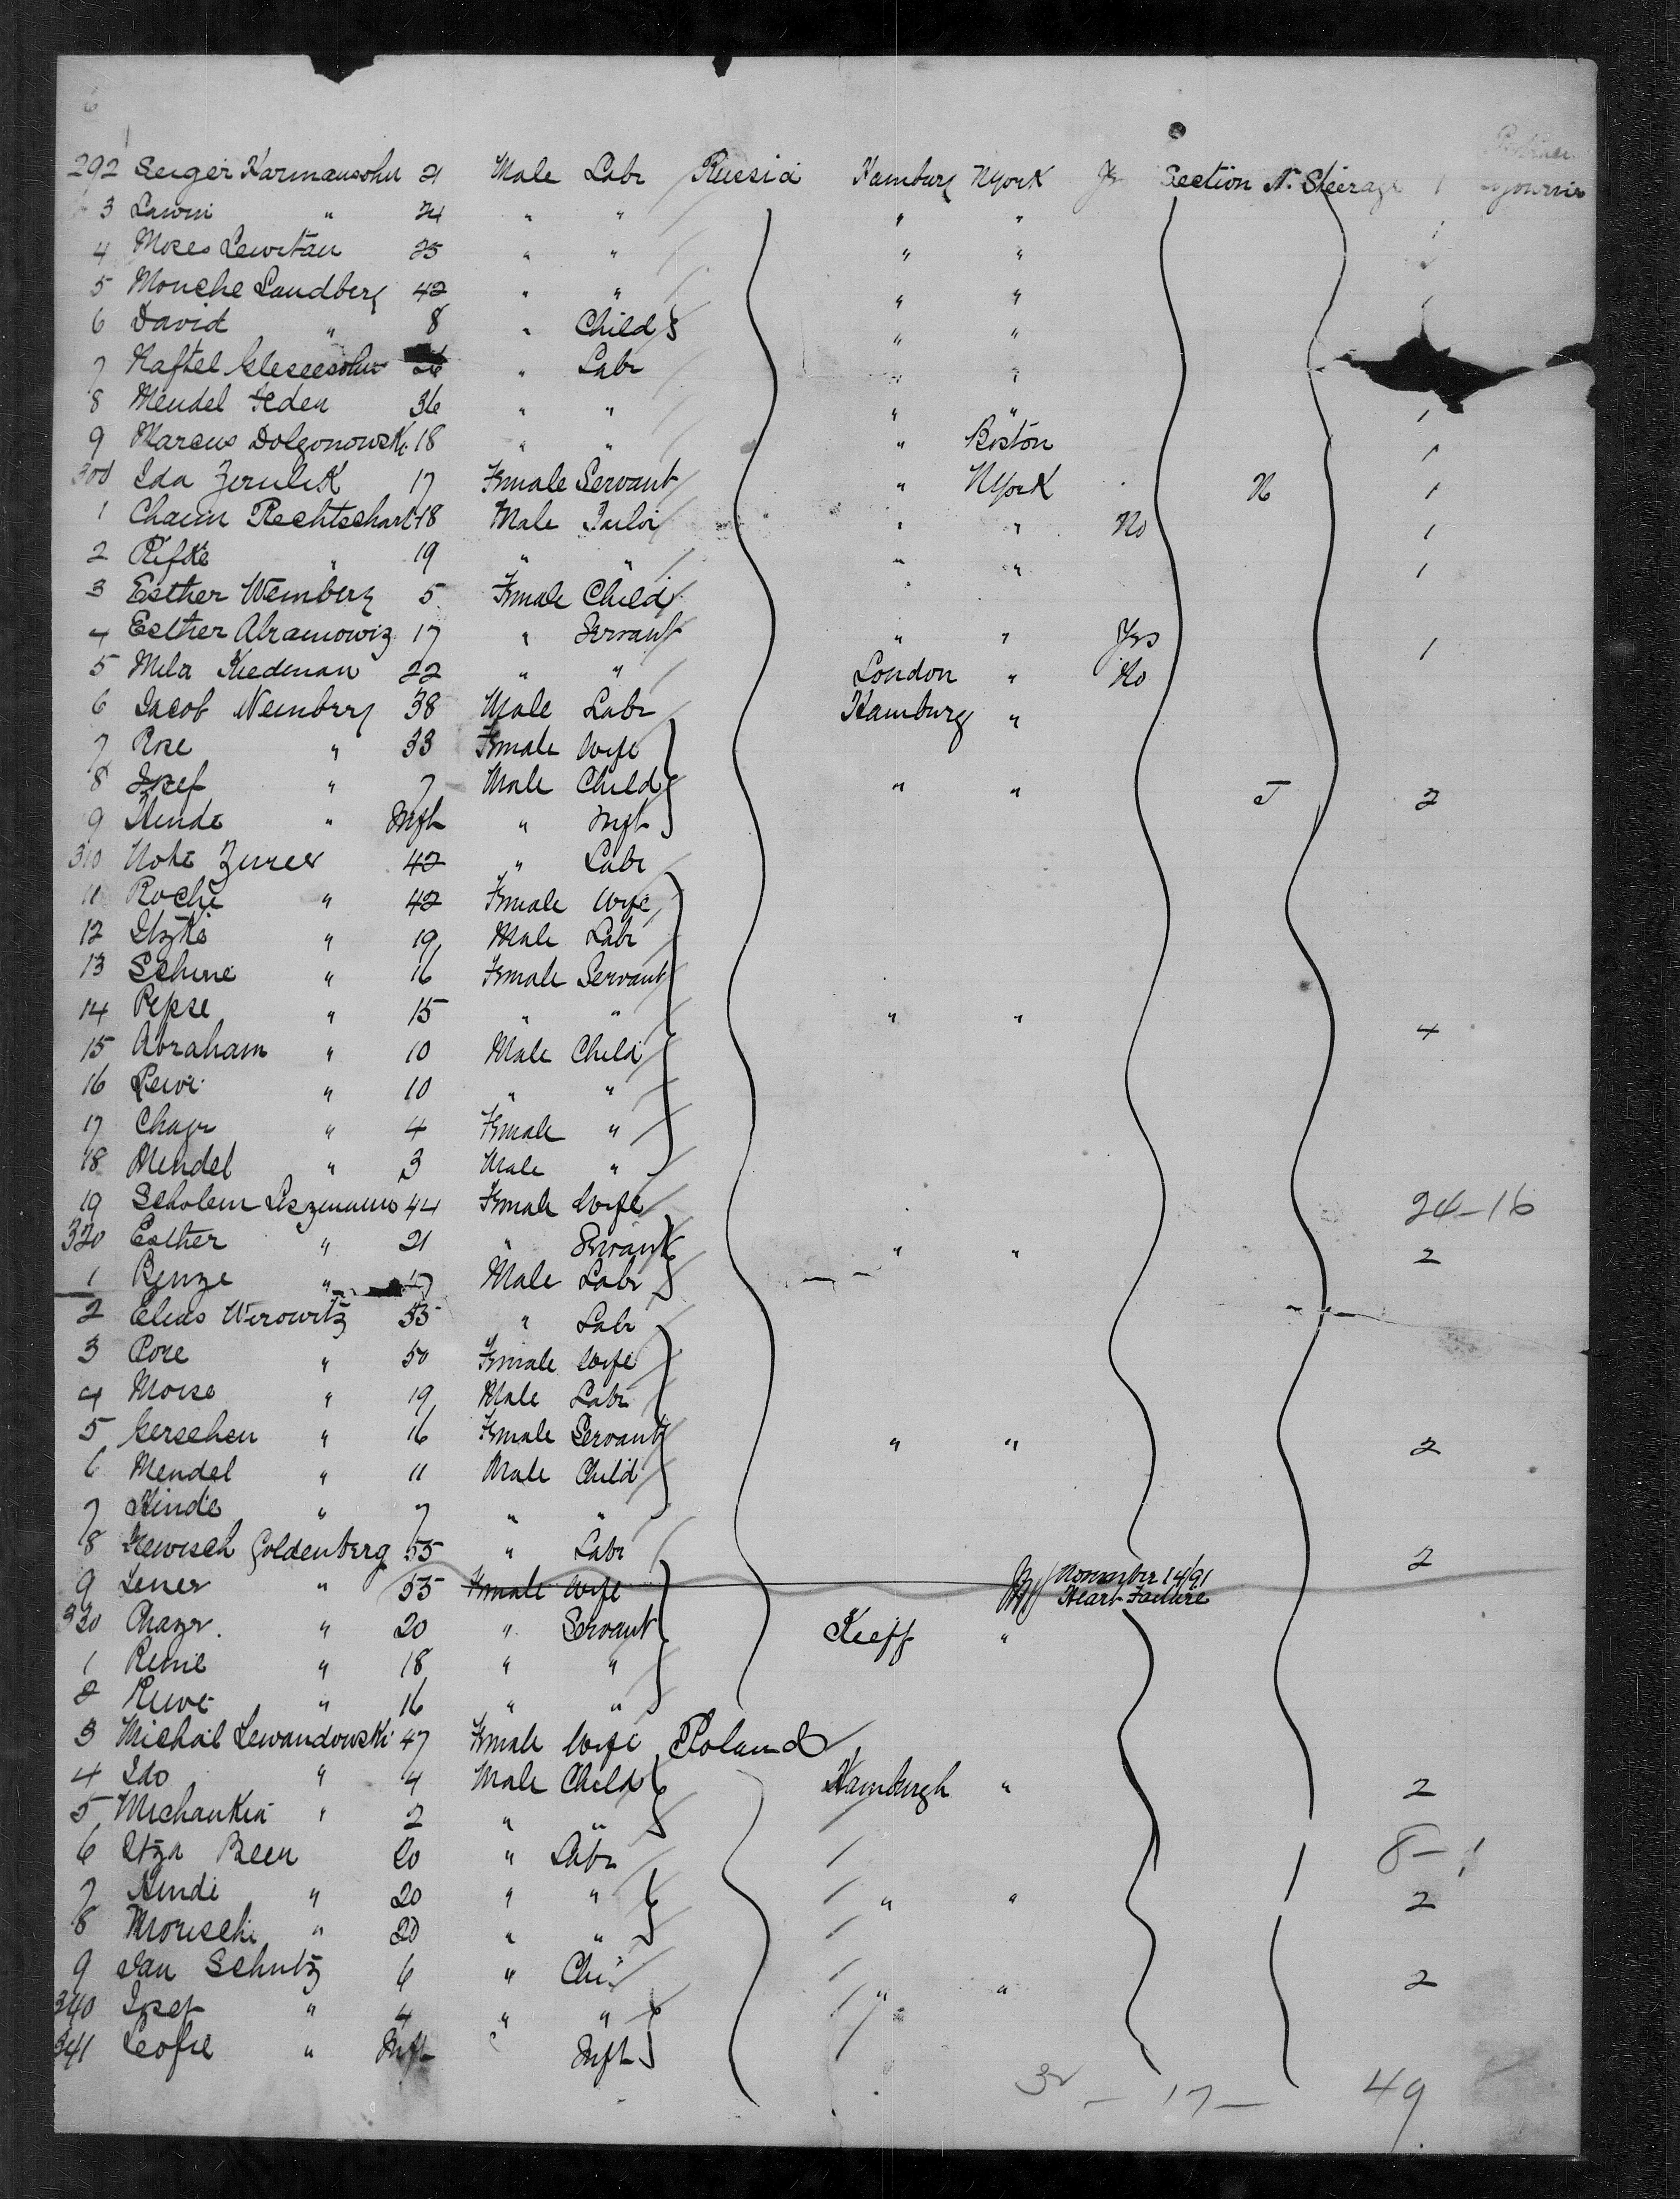 6
292 Seiger Karmansohn 21 Male Labr Russia Hamburg NYork Section N. Steerage 1
3 Lawin " 24 " " " "
4 Moses Lewitan 25 " " " " 1
5 Mouche Landberg 42 " " " "
6 David " 8 " Child " " 1
7 Naftel 26 " Labr " "
8 Mendel Feden 36 " " " " 1
9 Marcus Dolgonowski 18 " " " Boston 1
300 Ida Zerulik 17 Female Servant " NYork N 1
1 Chaim Rechtschart 18 Male Tailor " " No 1
2 Rifke " 19 " " " " 1
3 Esther Weinberg 5 Female Child
4 Esther Abramowiz 17 " Servant " " Yes 1
5 Mila Kiedman 22 " " London " No
6 Jacob Weinberg 38 Male Labr Hamburg "
7 Rose " 33 Female Wife
8 Josef " 7 Male Child " " J 2
9 Hinde " Inft " Inft
310 Note Zurer 42 " Labr
11 Roche " 42 Female Wife
12 Itzke " 19 Male Labr
13 Scheine " 16 Female Servant
14 Pepse " 15 " " " " 4
15 Abraham " 10 Male Child
16 Lewi " 10 " "
17 Chaje " 4 Female "
18 Mendel " 3 Male "
19 Scholem Liszmann 44 Female Wife 24-16
320 Esther " 21 " Servant " " 2
1 Benze " 17 Male Labr
2 Elias Wirowitz 55 " Labr
3 Rose " 50 Female Wife
4 Moise " 19 Male Labr
5 Gerschen " 16 Female Servant " " 2
6 Mendel " 11 Male Child
7 Hinde " 7 " "
8 Hewisch Goldenberg 55 " Labr 2
9 Lener " 55 Female Wife November 14/91
Heart Failure
330 Chazer " 20 " Servant Kieff "
1 Reme " 18 " "
2 Ruwe " 16 " "
3 Michal Lewandowski 47 Female Wife Poland
4 Ido " 4 Male Child Hamburgh " 2
5 Michankia " 2 " "
6 Itza Been 20 " Labr 8- 1
7 Hindi " 20 " " " " 2
8 Morische " 20 " "
9 Jan Schultz 6 " Chi " " 2
340 Josef " 4 " " "
341 Leofie " Inft Inft
32 - 17 - 49